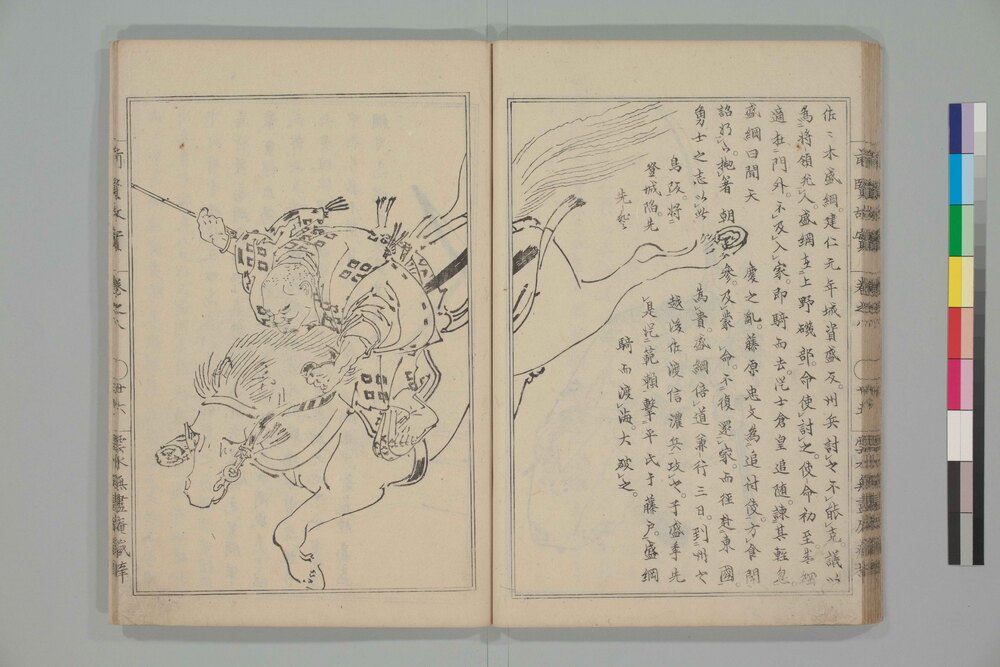 佐〻木盛綱。建仁元年城資盛反。州兵討之不能克。議以
爲將領。盛綱在上野磯部。命使討之。使命初至。盛綱
適在門外。不及入家。即騎而去。從士倉皇追随。諫其輕忽。
盛綱曰聞天慶之亂。藤原忠文為追討使。方食聞
詔乃抛箸朝參。及蒙命。不復還家。而徑赴東國。
勇士之志以此為貴。盛綱倍道兼行三日。到州之
鳥坂將越後佐渡信濃兵攻之。子盛季先
登城陷。先是從範頼擊平氏于藤戸。盛綱
先登騎而渡海。大破之。
前賢故實 卷之八 卅六 雲水無盡庵藏梓